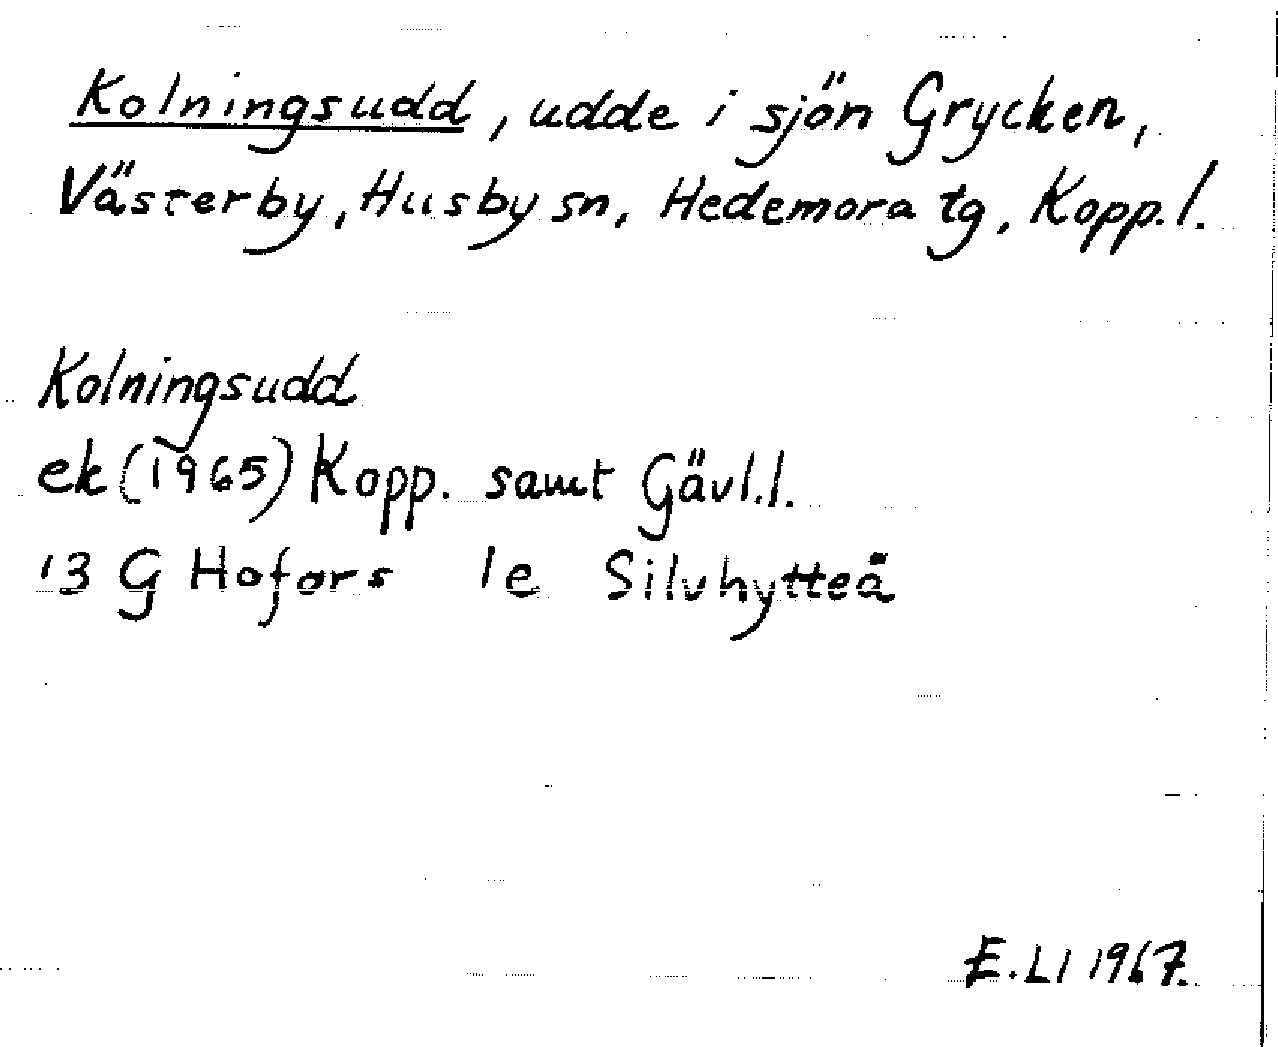 Kolningsudd, udde i sjön Grycken,
Västerby, Husby sn, Hedemora tg, Kopp.l.
Kolningsudd
ek (1965) Kopp. samt Gävl.l.
13 G Hofors 1e Silvhytteå
E.LI 1967.